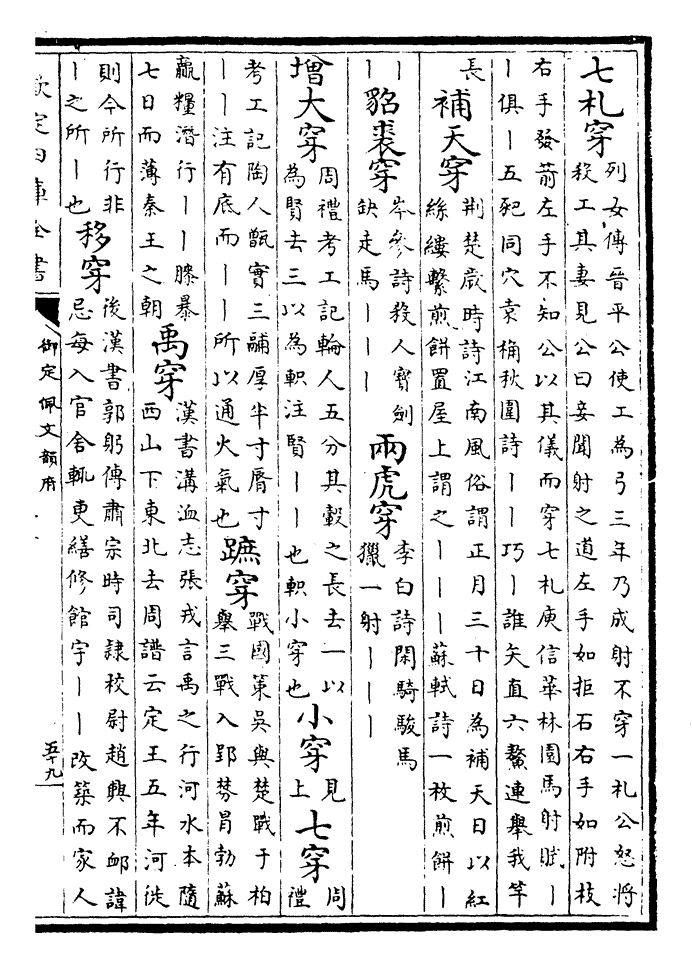 七札穿
列女傳晉平公使工為弓三年乃成射不穿一札公怒將
殺工其妻見公曰妾聞射之道左手如拒石右手如附枝
右手發箭左手不知公以其儀而穿七札庾信華林園馬射賦丨
丨俱丨五豝同穴袁桷秋圍詩丨丨巧丨誰矢直六鰲連舉我竿
長
補天穿
荆楚歲時詩江南風俗謂正月三十日為補天日以紅
絲縷繫煎餅置屋上謂之丨丨丨蘇軾詩一枚煎餅丨
丨
丨
貂裘穿
岑參詩殺人寳劍
缺走馬丨丨丨
兩虎穿
李白詩閑騎駿馬
獵一射丨丨丨
增大穿
周禮考工記輪人五分其轂之長去一以
為賢去三以為軹注賢丨丨也軹小穿也
小穿
見
上
七穿
周
禮
考工記陶人甑實三鬴厚半寸脣寸
丨丨注有底而丨丨所以通火氣也
蹠穿
戰國策吳與楚戰于柏
舉三戰入郢棼冒勃蘇
羸糧潛行丨丨膝暴
七日而薄秦王之朝
禹穿
漢書溝洫志張戎言禹之行河水本隨
西山下東北去周譜云定王五年河徙
則今所行非
丨之所丨也
移穿
後漢書郭躬傳肅宗時司隸校尉趙興不卹諱
忌每入官舍輒更繕修館宇丨丨改築而家人
欽定四庫全書
御定佩文韻府
五十九